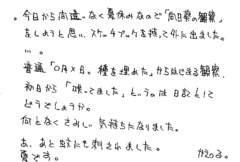 。今日から間違いなく夏休みなので「向日葵の観察」
をしようと思い、スケッチブックを持って外に出ました。
…。
普通「○月×日。種を埋めた」からはじまる観察、
初日から「咲いてました」というのは日記として
どうでしょうか。
何となくさみしい気持ちになりました。
あ、あと蚊にも刺されました。
夏です。